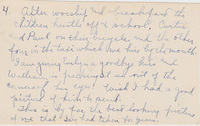 4. After worship and breakfast the
children hustle off to school, Curtis
and Paul on their bicycles and the other
four in the taxi which we hire by the month.
I am giving Emily a goodbye kiss and
William is perched as out of the
corner of his eye! Wish I had a good
picture of him to send.
This is by far the best looking picture
of me that I've had taken for years.